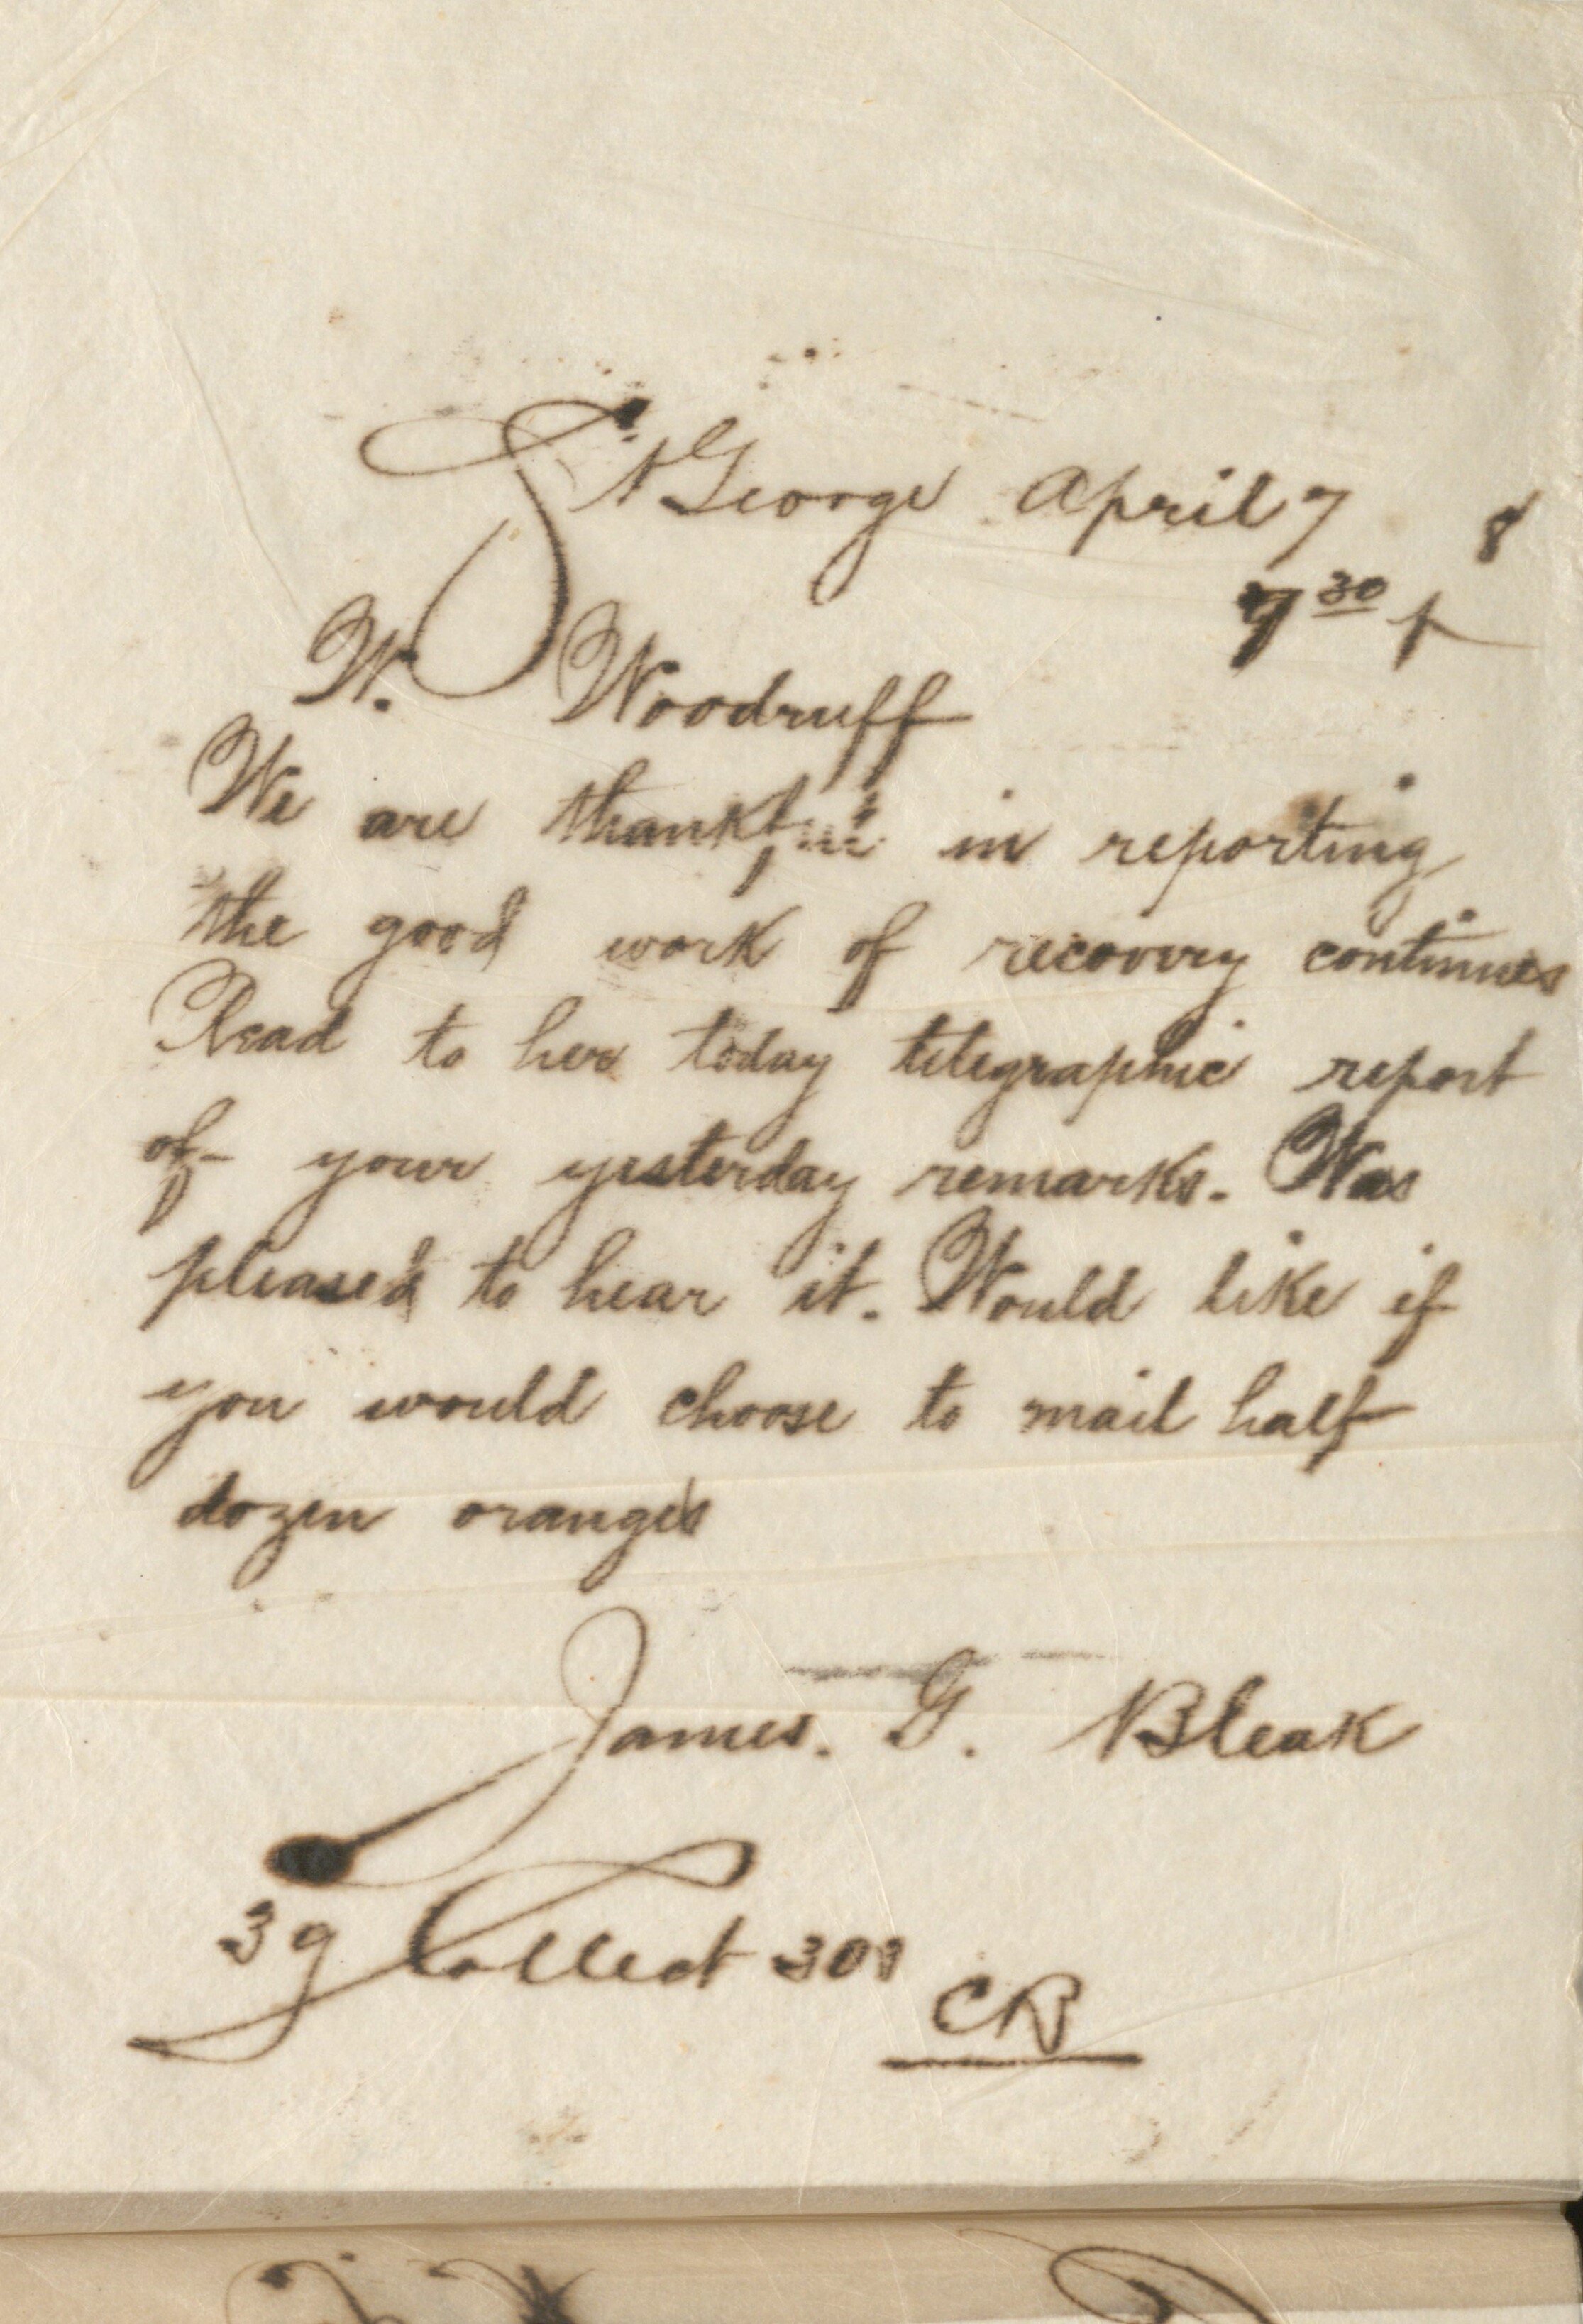 St George April 7 8
7 30 p
W. Woodruff
We are thankful in reporting
the good work of recovery continues
Read to her today telegraphic report
of your yesterday remarks. Was
pleased to hear it. Would like if
you would choose to mail half
dozen oranges
James. G. Bleak
39 Collect 309
CB